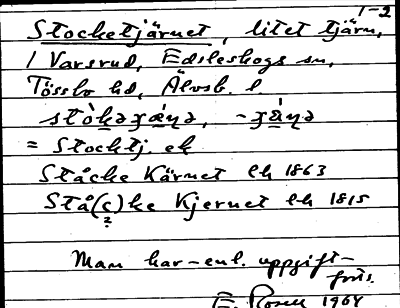 1-2
Stocketjärnet, litet tjärn,
/ Varsrud, Edsleskogs sn,
Tössbo hd, Älvsb. l
= Stocktj. ek
Ståcke Kärnet lk 1863
Stå(c)ke Kjernet lk 1815
?
Man har - enl. uppgift -
förs.
E. Rosell 1964